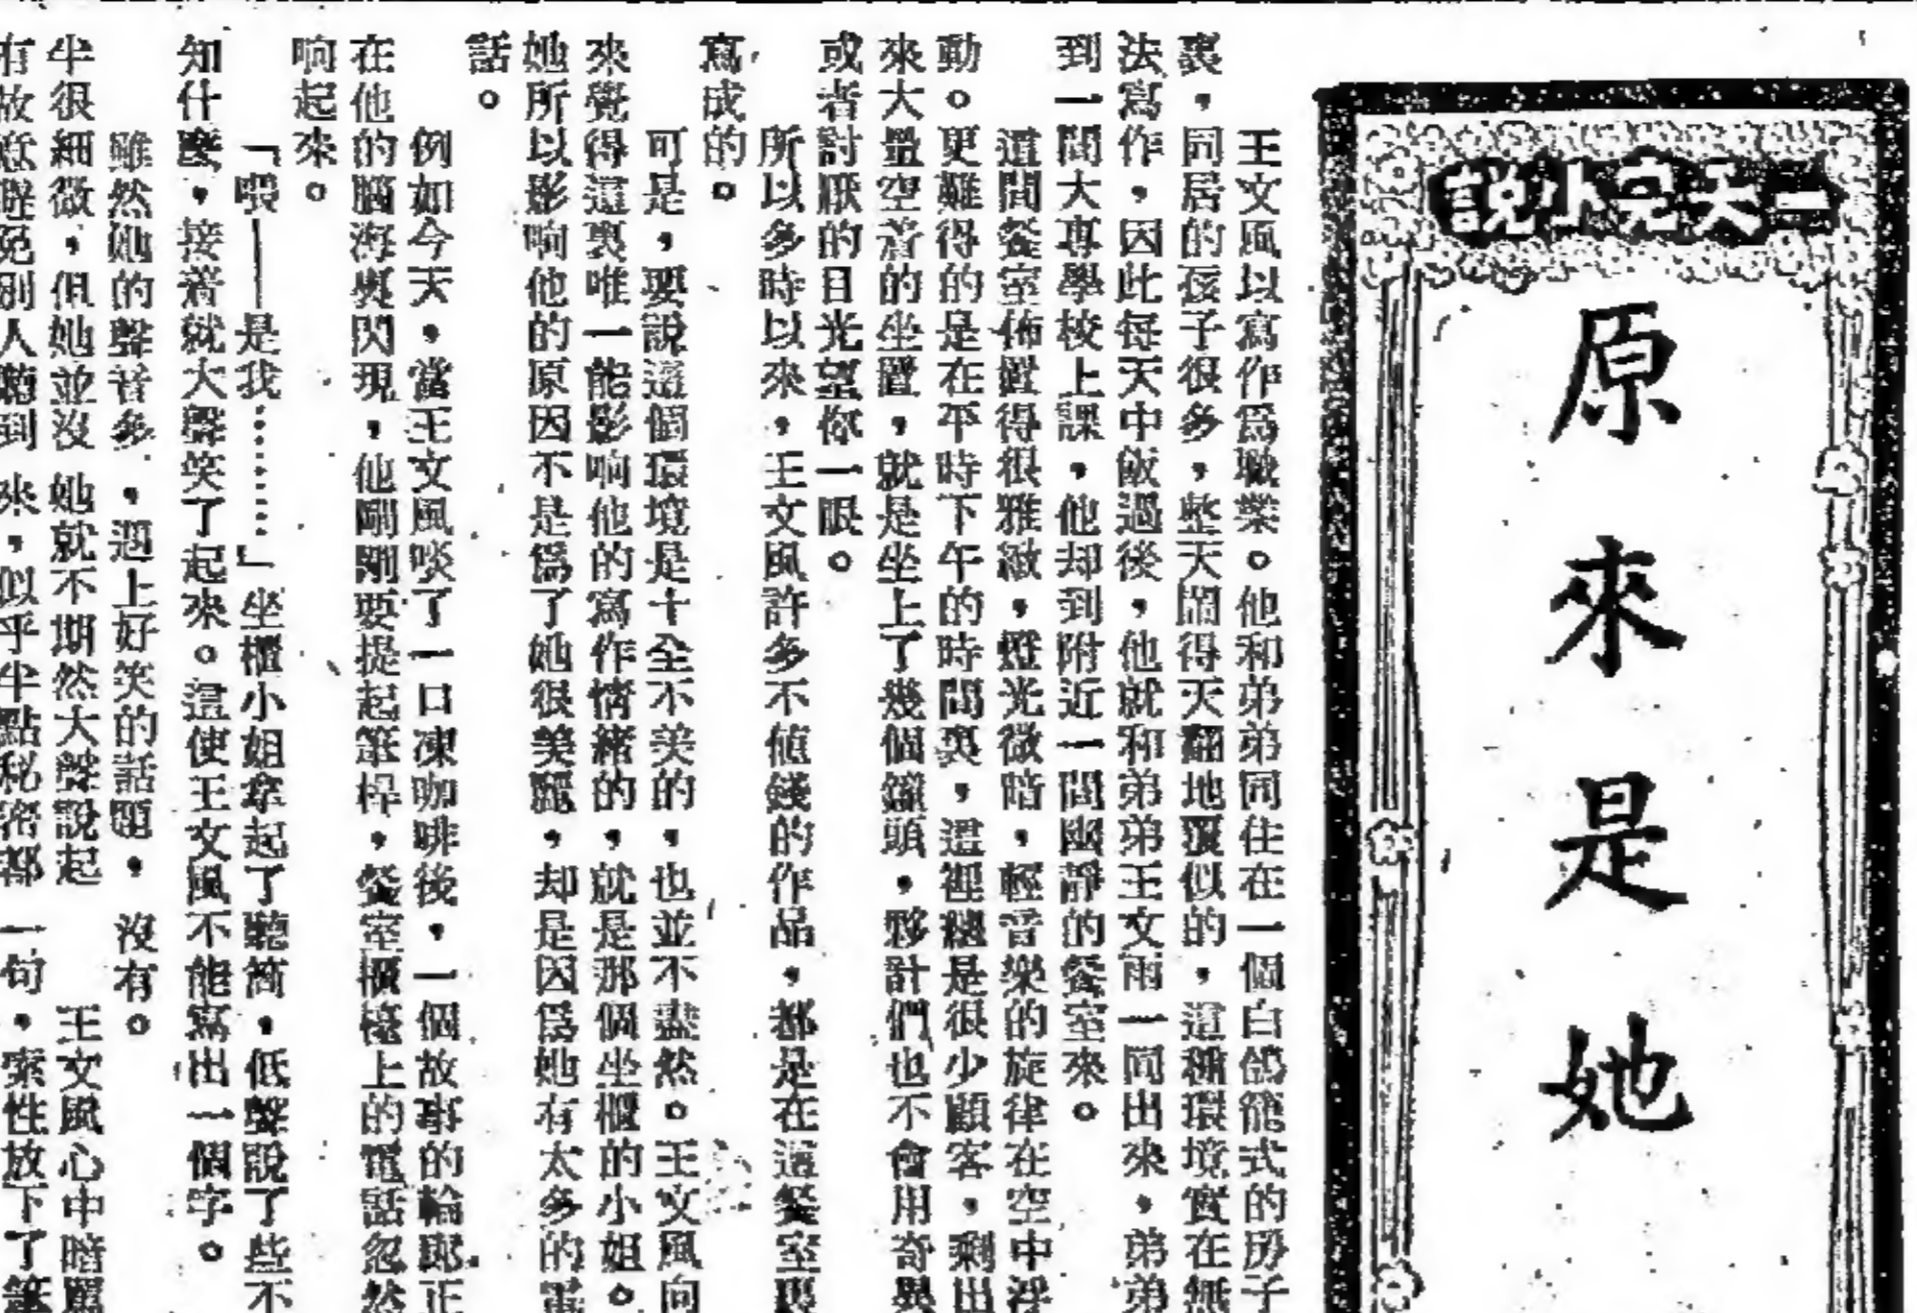 一天完小説
原來是她
王文風以寫作爲職業。他和弟弟同住在一個白鴿籠式的房子
裏，同居的孩子很多，整天鬧得天翻地覆似的，這種環境實在無
法寫作，因此每天中飯過後，他就和弟弟王文雨一同出來，弟弟
到一間大專學校上課，他却到附近一間幽靜的餐室來。
這間餐室佈置得很雅緻，燈光微暗，輕音樂的旋律在空中浮
動。更難得的是在平時下午的時間裏，這裡總是很少顧客，剩出
來大量空着的坐置，就是坐上了幾個鐘頭，夥計們也不會用奇異
或者討厭的目光望你一眼。
所以多時以來，王文風許多不値錢的作品，都是在這餐室裏
寫成的。
可是，要說這個環境是十全不美的，也並不盡然。王文風向
來覺得這裏唯一能影响他的寫作情緒的，就是那個坐櫃的小姐。
她所以影响他的原因不是爲了她很美麗，却是因爲她有太多的電
話。
例如今天，當王文風啖了一口凍咖啡後，一個故事的輪廓正
在他的腦海裏閃現，他剛剛要提起筆桿，餐室櫃檯上的電話忽然
响起來。
「喂——是我………」坐櫃小姐拿起了聽筒，低聲說了些不
知什麼，接着就大聲笑了起來。這使王文風不能寫出一個字。
雖然她的聲音多，遇上好笑的話題，沒有。
半很細微，但她並沒 她就不期然大聲說起 王文風心中暗罵
有故意避免別人聽到 來，似乎半點秘密都 一句，索性放下了筆